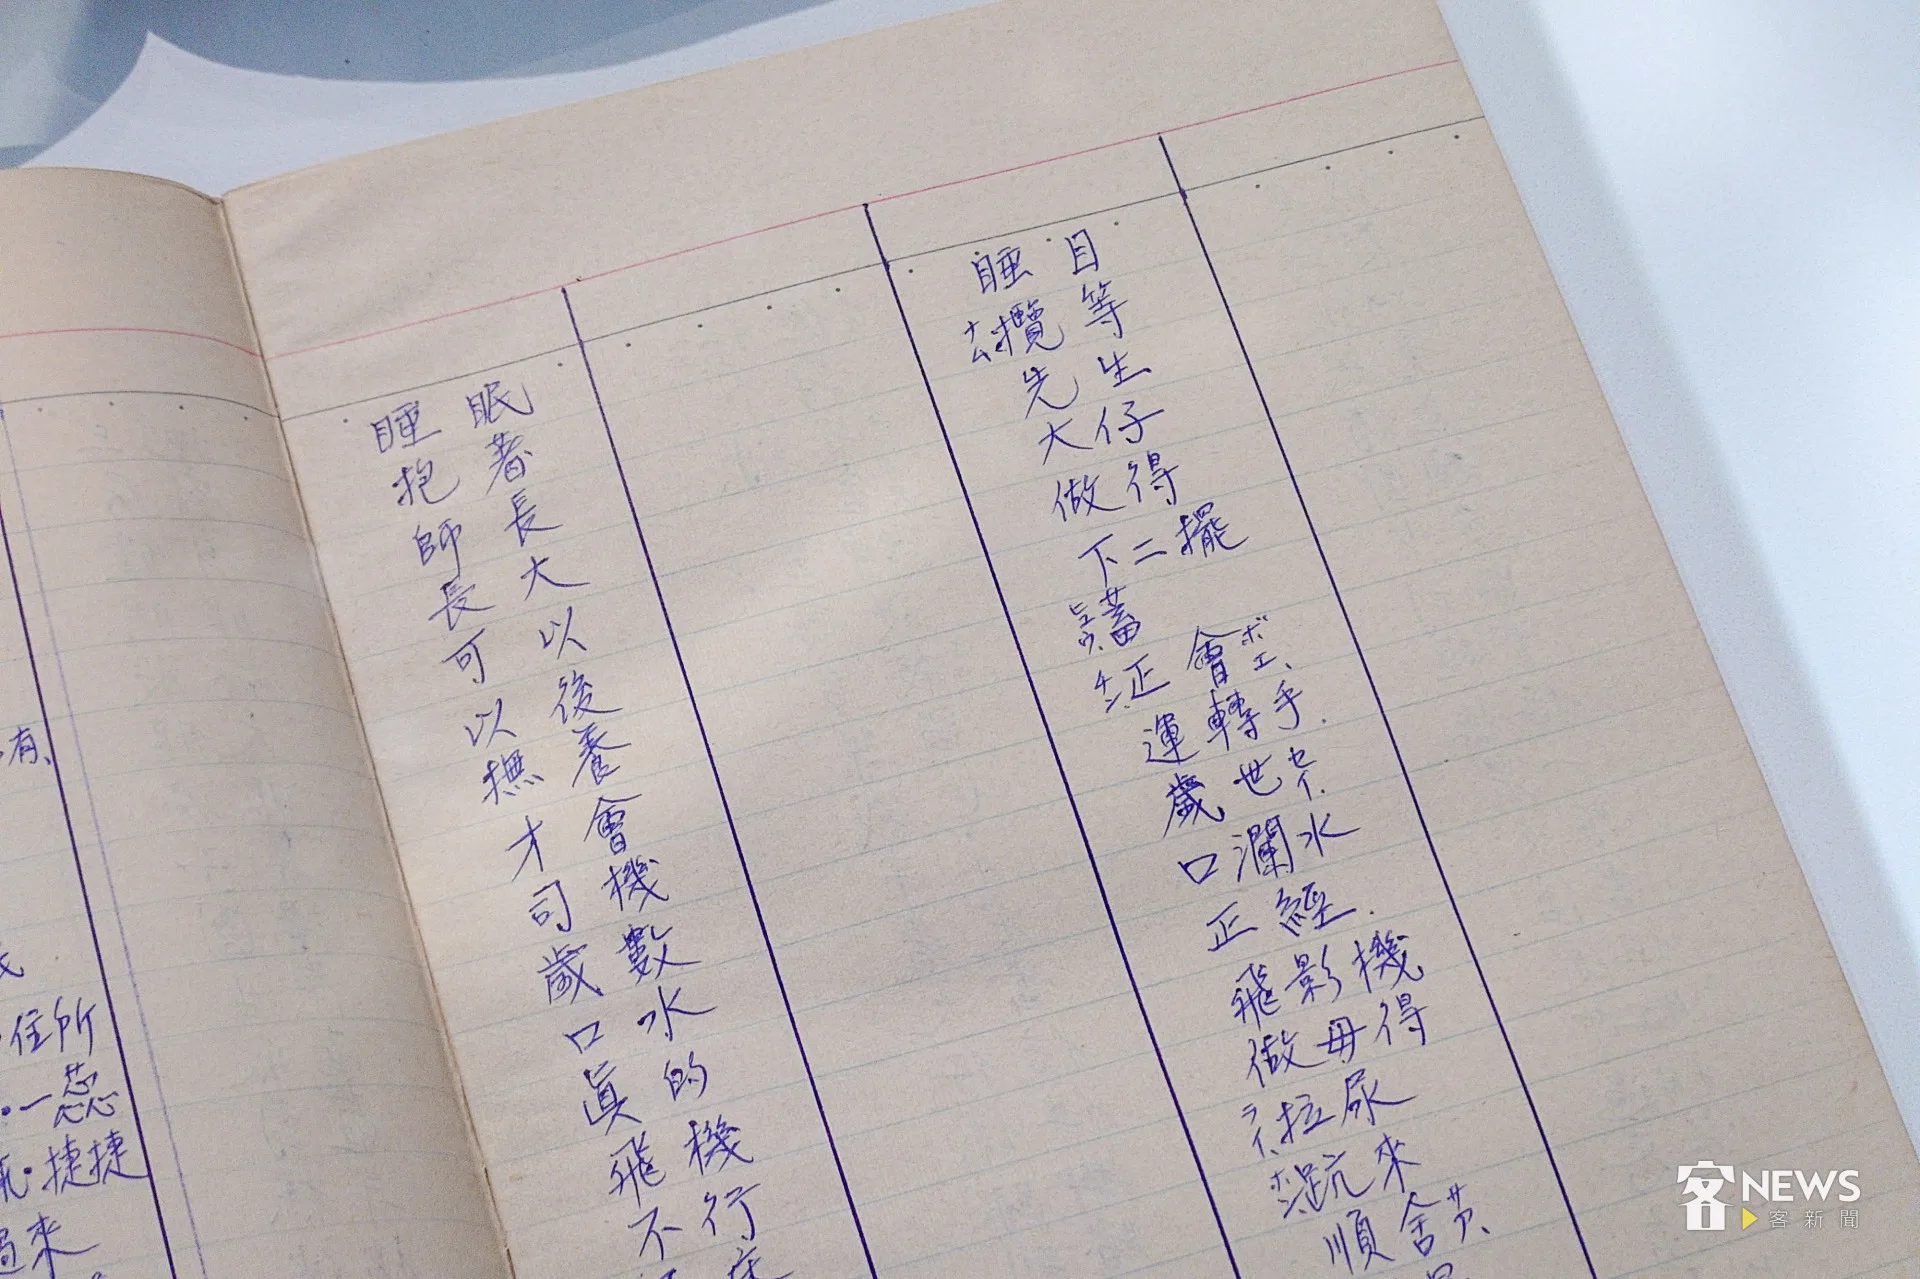 有、
住所
・一蕊
・捷捷
來
睡眠
抱著
師長
長大
可以
以後
撫養
才會
司機
歲數
口水
眞的
飛機
不行
睡目
ナム攬等
先生
大仔
做得
下二擺
蓄
正會ボエ、
運轉手.
歲世セイ.
口瀾水
正經.
飛影機
做毋得
拉尿
來
順
客NEWS
客新聞